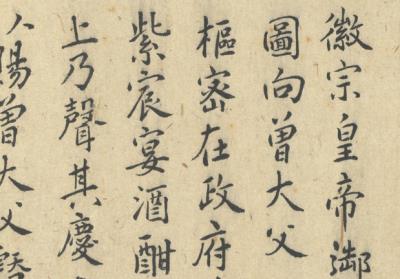 徽宗皇帝御
圖向曾大父
樞密在政府
紫宸宴酒酣
上乃聲其慶
人賜曾大父